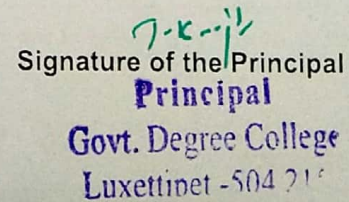 Signature of the Principal
Principal
Govt. Degree College
Luxettipet -504 215